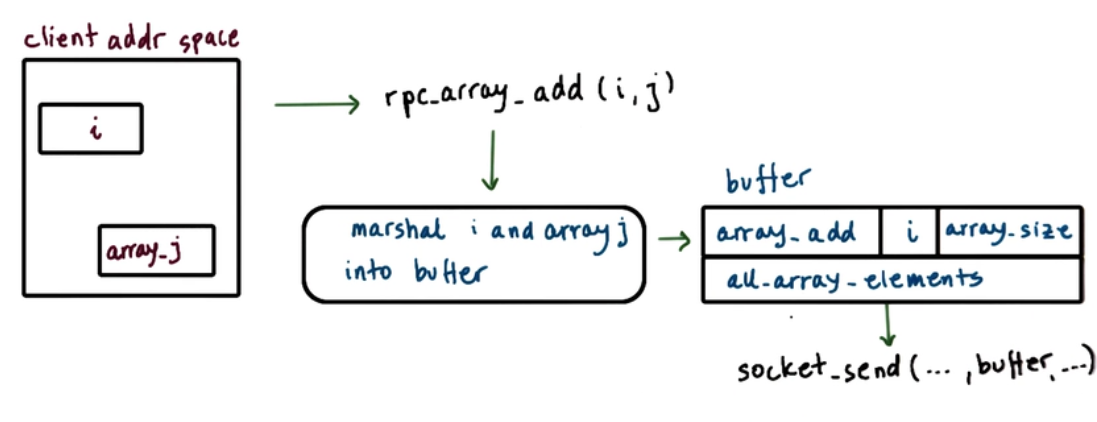 client addr space
i
array_j
rpc_array_add (i,j)
marshal i and array j
into buffer
buffer
array_add i array_size
all_array_elements
socket_send (... ,buffer, ...)